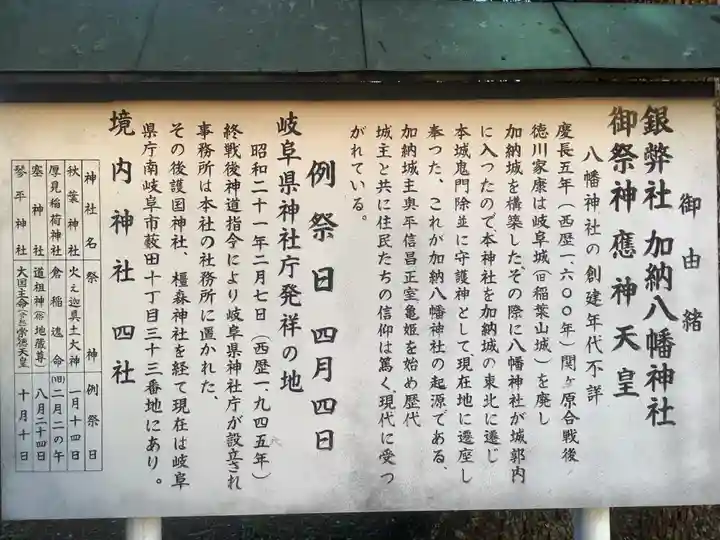 御由緒
銀弊社 加納八幡神社
御祭神 應神天皇
八幡神社の創建年代不詳
慶長五年（西歴一、六〇〇年）関ヶ原合戦後
徳川家康は岐阜城（旧稲葉山城）を廃し
加納城を構築した、その際に八幡神社が城郭内
に入ったので、本神社を加納城の東北に遷じ
本城鬼門除並に守護神として現在地に遷座し
奉った、これが加納八幡神社の起源である、
加納城主奥平信昌正室亀姫を始め歴代
城主と共に住民たちの信仰は篤く、現代に受つ
がれている。
例祭日 四月四日
岐阜県神社庁発祥の地
昭和二十一年二月七日（西歴一、九四五年）
終戦後神道指令により岐阜県神社庁が設立され
事務所は本社の社務所に置かれた、
その後護国神社、橿森神社を経て現在は岐阜
県庁南岐阜市薮田十丁目三十三番地にあり。
境内神社 四社
神社名 祭神 例祭日
秋葉神社 火之迦具土大神 一月十四日
厚見稲荷神社 倉稲魂命 (旧)二月二の午
塞神社 道祖神(俗 地蔵尊) 八月二十四日
琴平神社 大国主命(合祀 崇徳天皇) 十月十日